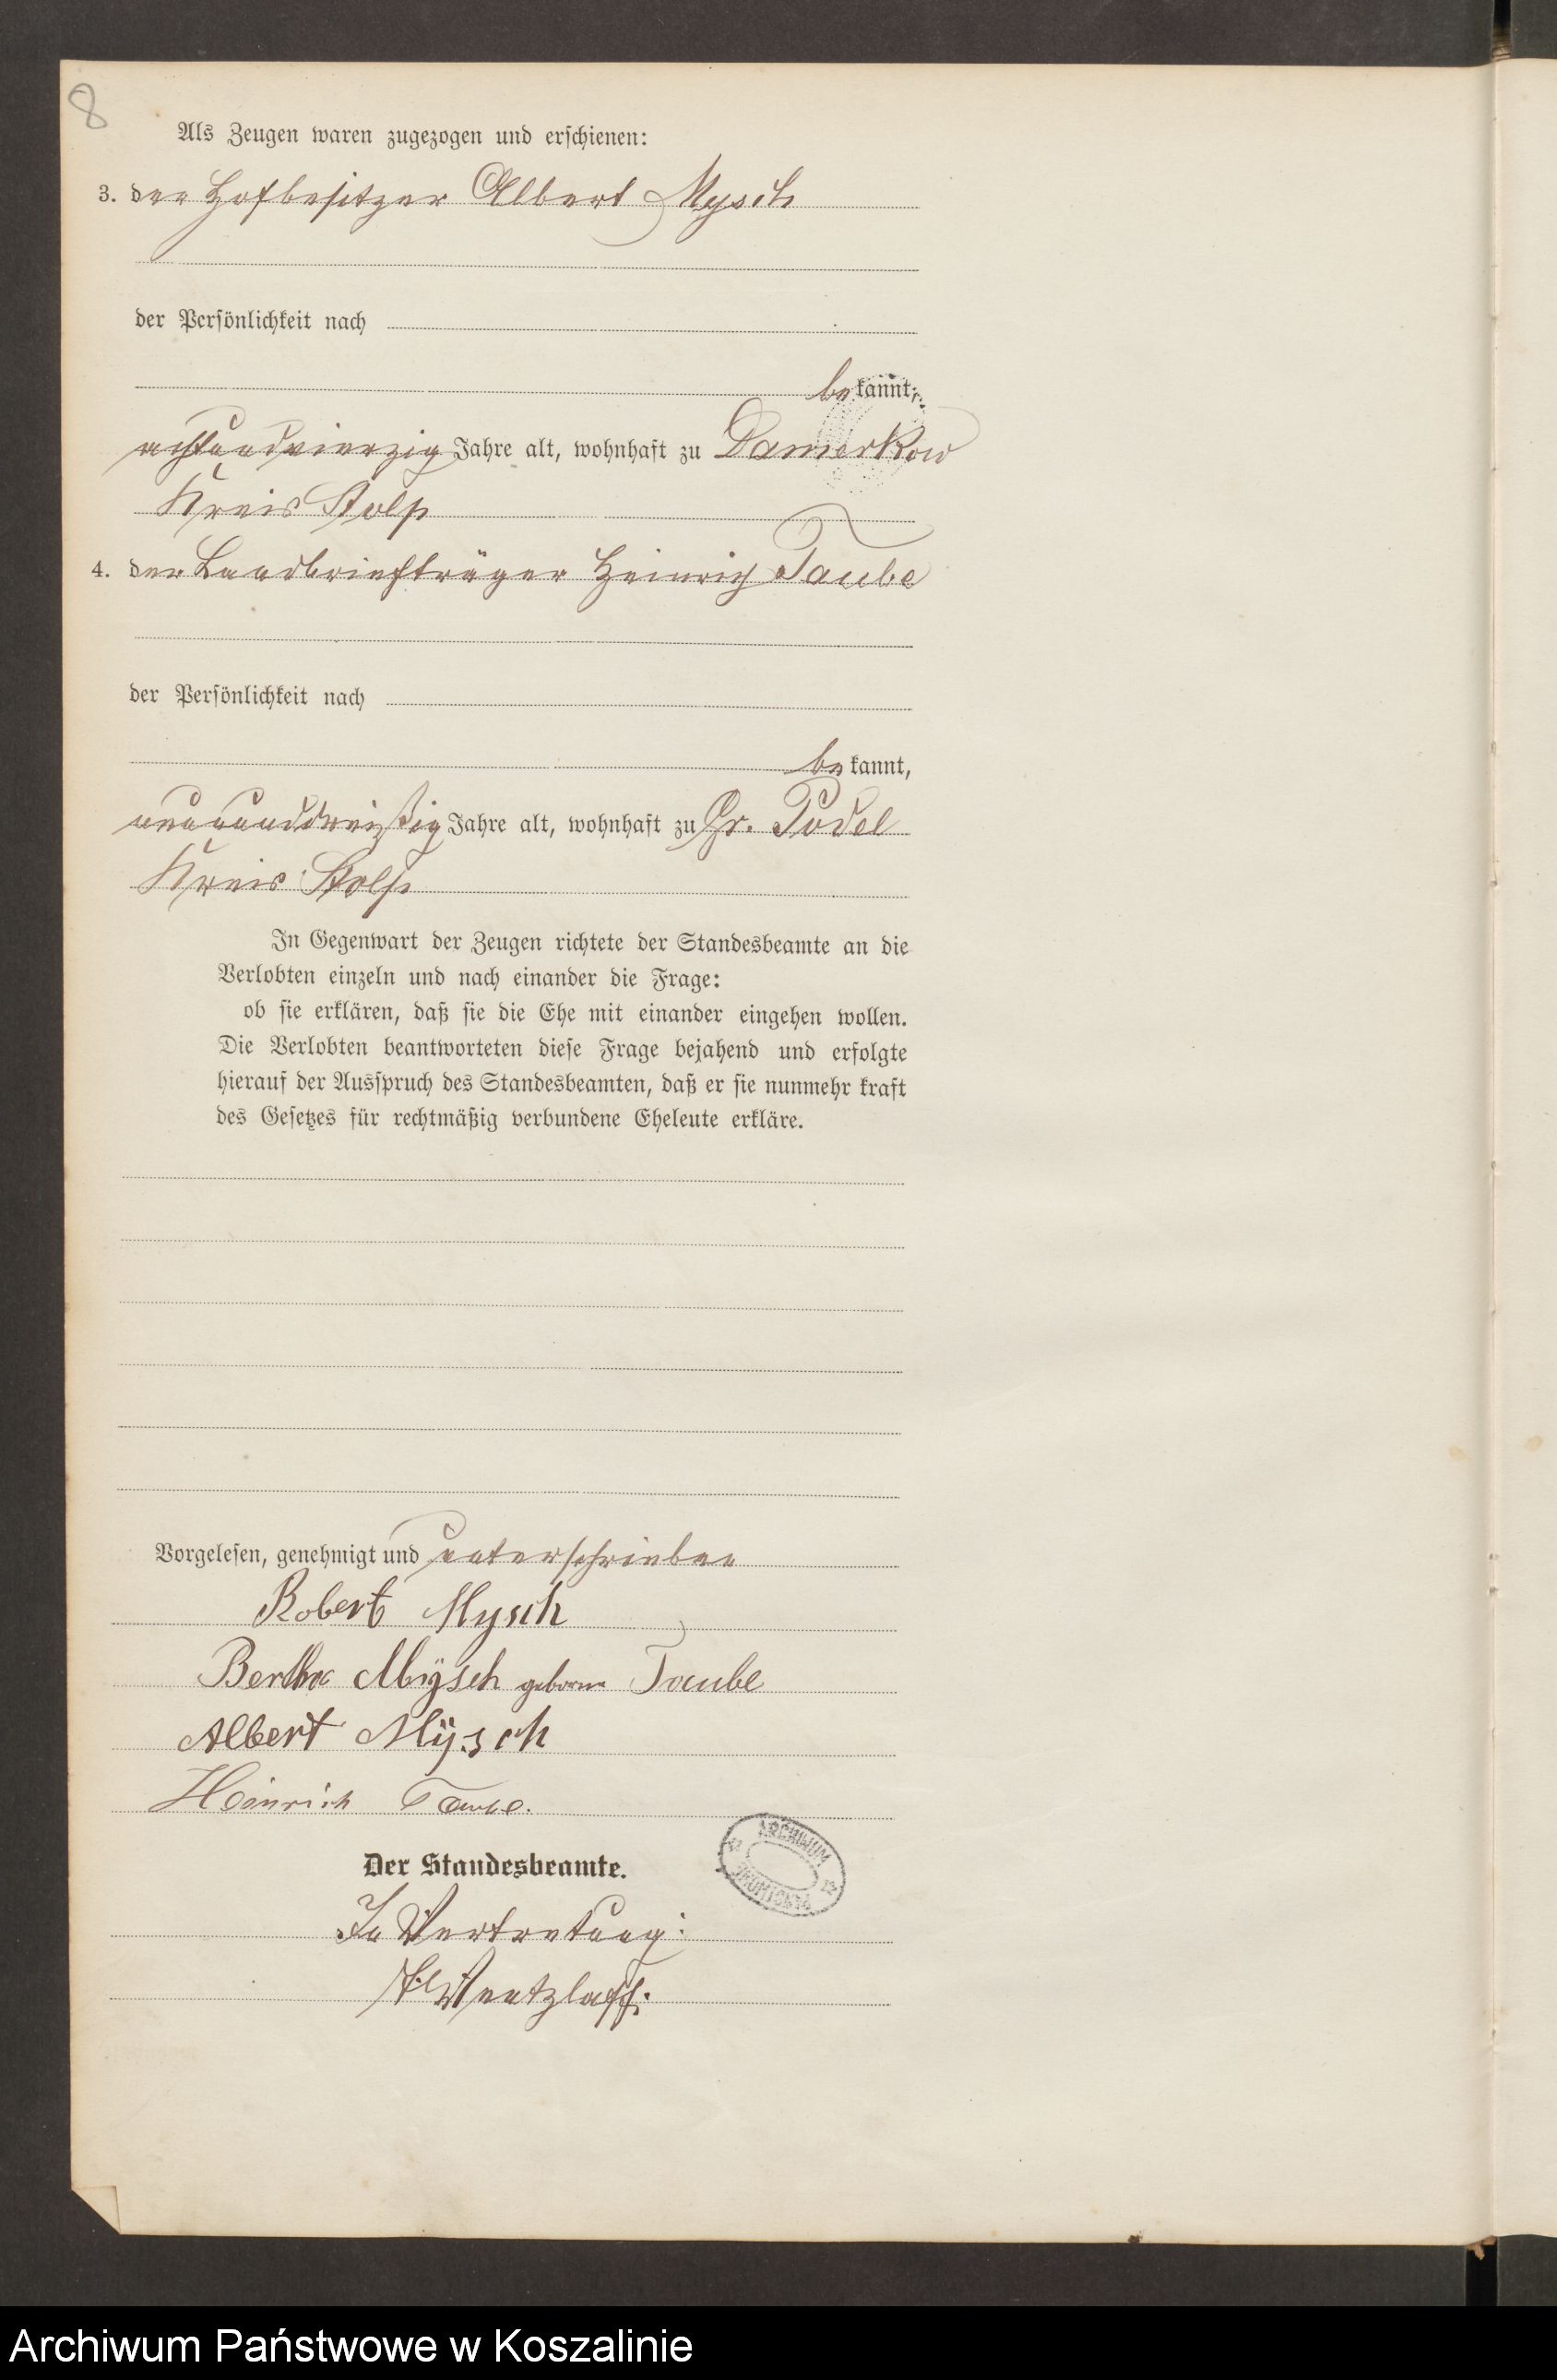 8
Als Zeugen waren zugezogen und erschienen:
3. der Hofbesitzer Albert Mysch
der Persönlichkeit nach
bekannt,
achtundvierzig Jahre alt, wohnhaft zu Damerkow
Kreis Stolp
4. der Landbriefträger Heinrich Taube
der Persönlichkeit nach
bekannt,
neununddreißig Jahre alt, wohnhaft zu Gr. Podel
Kreis Stolp
In Gegenwart der Zeugen richtete der Standesbeamte an die
Verlobten einzeln und nach einander die Frage:
ob sie erklären, daß sie die Ehe mit einander eingehen wollen.
Die Verlobten beantworteten diese Frage bejahend und erfolgte
hierauf der Ausspruch des Standesbeamten, daß er sie nunmehr kraft
des Gesetzes für rechtmäßig verbundene Eheleute erkläre.
Vorgelesen, genehmigt und unterschrieben
Robert Mysch
Bertha Mÿsch geborne Taube
Albert Mÿsch
Heinrich Taube.
ARCHIWUM
Der Standesbeamte.
In Vertretung:
Wentzlaff.
Archiwum Państwowe w Koszalinie